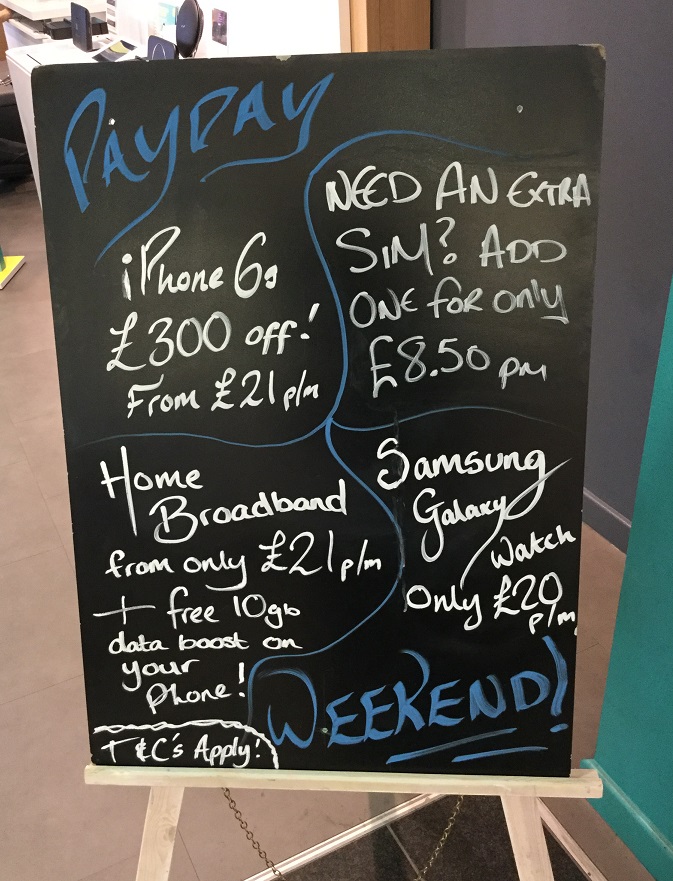 PAYDAY
iPhone 6s
£300 off!
From £21 p/m
NEED AN EXTRA
SIM? ADD
ONE FOR only
£8.50 pm
Home
Broadband
from only £21 p/m
+ free 10gb
data boost on
your
Phone!
Samsung
Galaxy
Watch
Only £20
p/m
WEEKEND!
T&C's Apply!